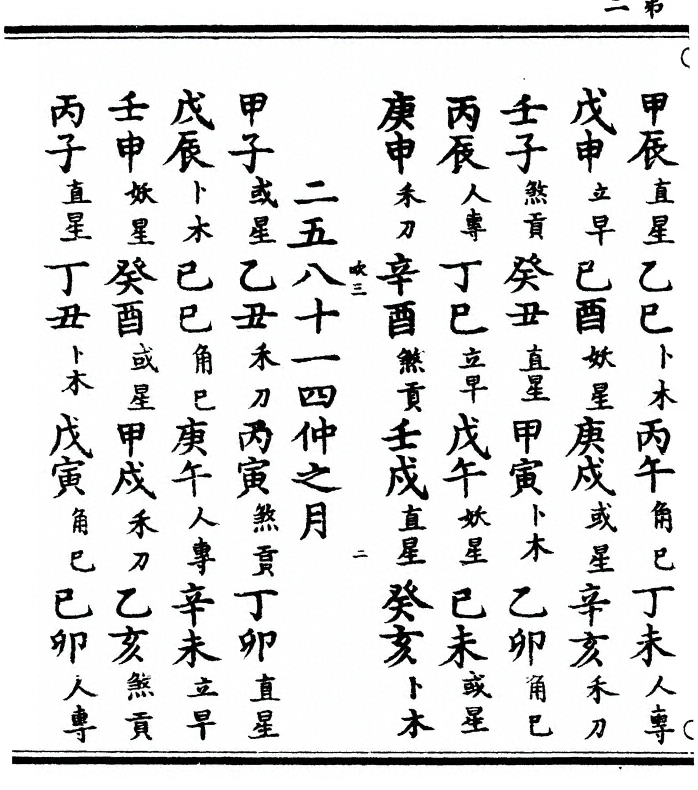 第二
甲辰直星乙巳卜木丙午角巳丁未人專
戊申立早己酉妖星庚戍或星辛亥禾刀
壬子煞貢癸丑直星甲寅卜木乙卯角巳
丙辰人專丁巳立早戊午妖星己未或星
庚申禾刀辛酉煞貢壬戍直星癸亥卜木
欽三 二
二五八十一四仲之月
甲子或星乙丑禾刀丙寅煞貢丁卯直星
戊辰卜木己巳角巳庚午人專辛未立早
壬申妖星癸酉或星甲戍禾刀乙亥煞貢
丙子直星丁丑卜木戊寅角巳己卯人專